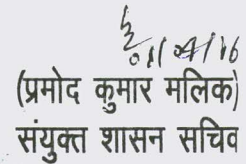 (प्रमोद कुमार मलिक)
संयुक्त शासन सचिव